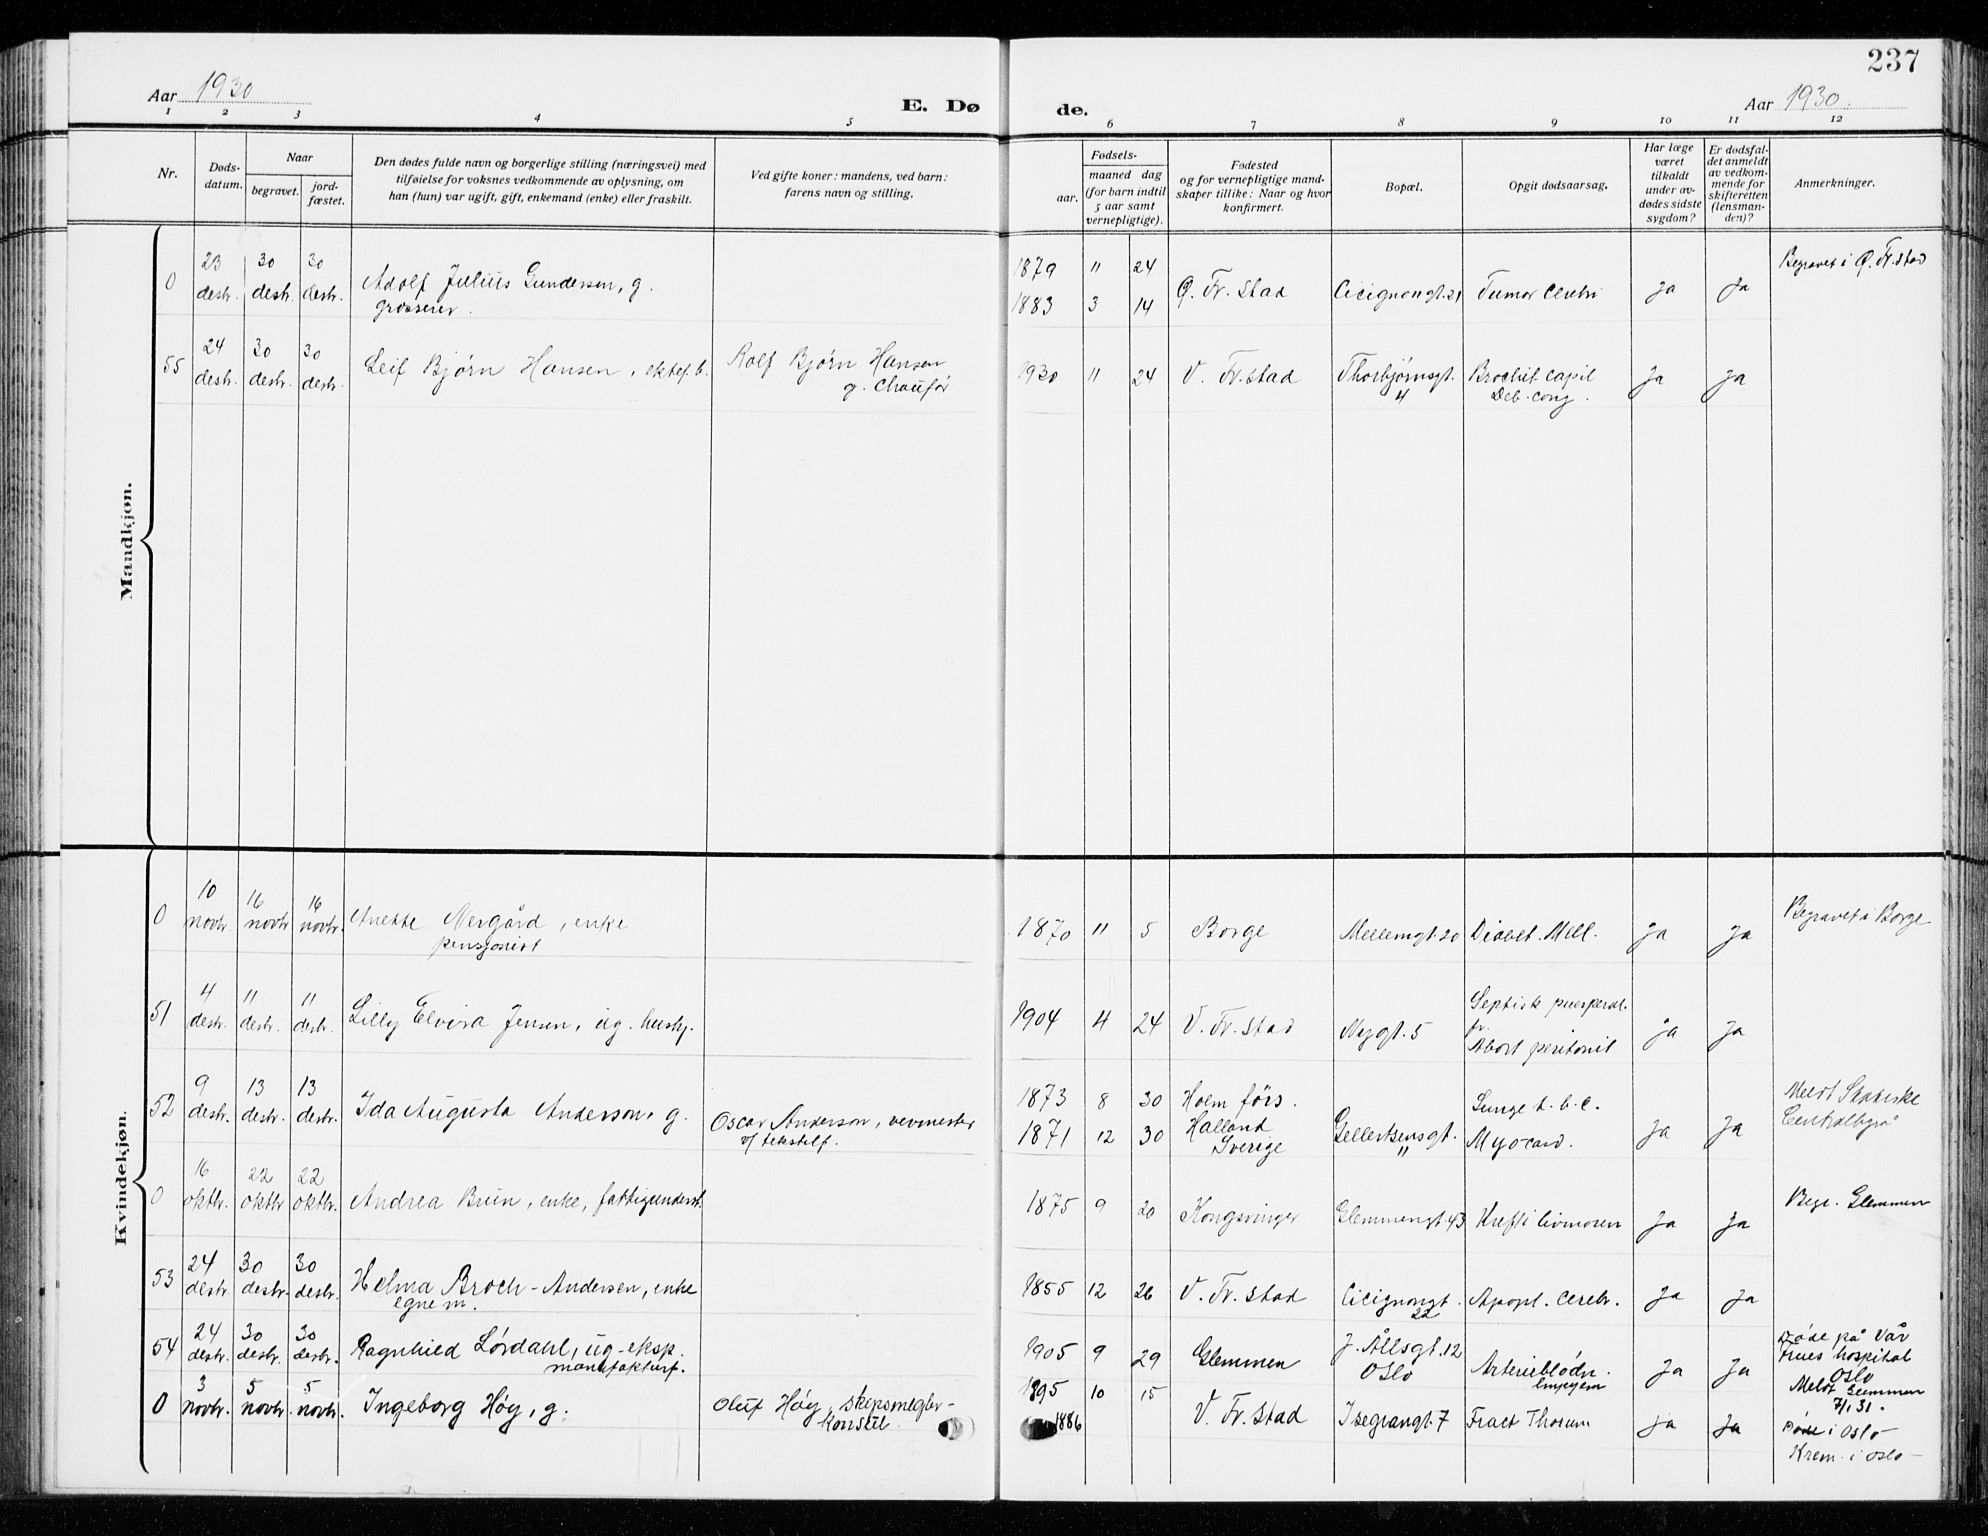 237
Aar 1930
E. Dø
de.
Aar 1930.
1 2 3 4 5 6 7 8 9 10 11 12
Nr.
Døds-
datum.
Naar
begravet.
jord-
fæstet.
Den dødes fulde navn og borgerlige stilling (næringsvei) med
tilføielse for voksnes vedkommende av oplysning, om
han (hun) var ugift, gift, enkemand (enke) eller fraskilt.
Ved gifte koner: mandens, ved barn:
farens navn og stilling.
Fødsels-
aar.
maaned dag
(for barn indtil
5 aar samt
vernepligtige).
Fødested
og for vernepligtige mand-
skaper tillike: Naar og hvor
konfirmert.
Bopæl.
Opgit dødsaarsag.
Har læge
været
tilkaldt
under av-
dødes sidste
sygdom?
Er dødsfal-
det anmeldt
av vedkom-
mende for
skifteretten
(lensman-
den)?
Anmerkninger.
Mandkjøn.
0 23 destr. 30 destr. 30 destr. Adolf Julius Gundersen, g.
grosserer.
1879 11 24
1883 3 14
Ø. Fr. stad Cicignongt. 21 Tumor Cerebri Ja Ja Begravet i Ø. Fr. stad
55 24 destr. 30 destr. 30 destr. Leif Bjørn Hansen, ektef. b. Rolf Bjørn Hansen
g. Chaufør
1930 11 24 V. Fr. stad Thorbjørnsgt. 4 Brochit capil
Deb. cong.
Ja Ja
Kvindekjøn.
0 10 novbr. 16 novbr 16 novbr. Anette Nergård, enke
pensjonist
1870 11 5 Borge Mellemgt. 20 Diabet. Mell. Ja Ja Begravet i Borge
51 4 destr. 11 destr. 11 destr. Lilly Elvira Jensen, ug. hush.
1904 4 24 V. Fr. stad Nygt. 5 Septisk puerperal
Abort peritonit
Ja Ja
52 9 destr. 13 destr. 13 destr. Ida Augusta Anderson, g. Oscar Anderson, vevmester
v/ tekstilf.
1873 8 30 Holm förs.
1871 12 30 Halland
Sverige
Gellertsensgt. 11
Lunge t.b.c.
Myocard.
Ja Ja Meldt Statistiske
Centralbyrå
0 16 oktbr. 22 oktbr 22 oktbr. Andrea Brun, enke, fattigunderst.
1875 9 20 Kongsvinger Glemmengt. 43 Kreft i livmoren Ja Ja Begr. Glemmen
53 24 destr 30 destr. 30 destr. Helma Broch-Andersen, enke
egne m.
1855 12 26 V. Fr. stad Cicignongt. 22 Apopl. Cerebr. Ja Ja
54 24 destr. 30 destr. 30 destr. Ragnhild Lørdahl, ug. eksp.
manufakturf.
1905 9 29 Glemmen J. Ållsgt. 12
Oslo
Arterieblødn.
Empyem
Ja Ja Døde på Vår
Frues hospital
Oslo
Meldt Glemmen
7/1 31.
0 3 novbr. 5 novbr. 5 novbr. Ingeborg Høy, g. Oluf Høy, skipsmegler-
konsul.
1895 10 15
1886
V. Fr. stad Isegrangt. 7 Fract Thorum Ja Ja Døde i Oslo
Krem. i Oslo